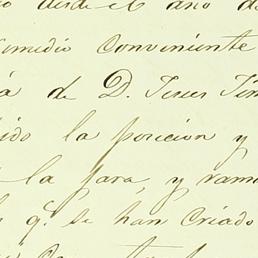 desde el año de
remedio conveniente
á de D. Jesus
la porcion y
la para, y ram
qe. se han criado